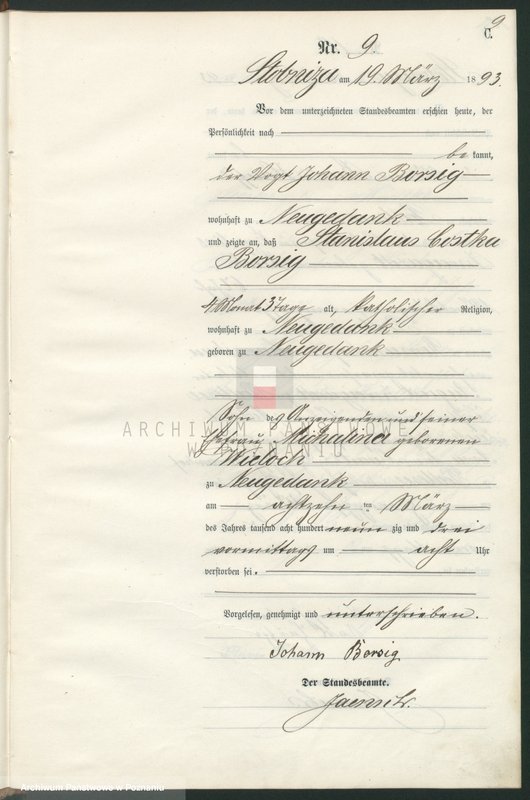 9
C.
Nr. 9.
Stobniza am 19. März 1893.
Vor dem unterzeichneten Standesbeamten erschien heute, der
Persönlichkeit nach
bekannt,
der Vogt Johann Borsig
wohnhaft zu Neugedank
und zeigte an, daß Stanislaus Costka
Borsig
4 Monat 3 Tage alt, katholischer Religion,
wohnhaft zu Neugedank
geboren zu Neugedank
Sohn des Anzeigenden und seiner
Ehefrau Michalina geborenen
Wieloch
ARCHIWUM PAŃSTWOWE
W POZNANIU
zu Neugedank
am achtzehn ten März
des Jahres tausend acht hundert neunzig und drei
vormittags um acht Uhr
verstorben sei.
Vorgelesen, genehmigt und unterschrieben.
Johann Borsig
Der Standesbeamte.
Archiwum Państwowe w Poznaniu